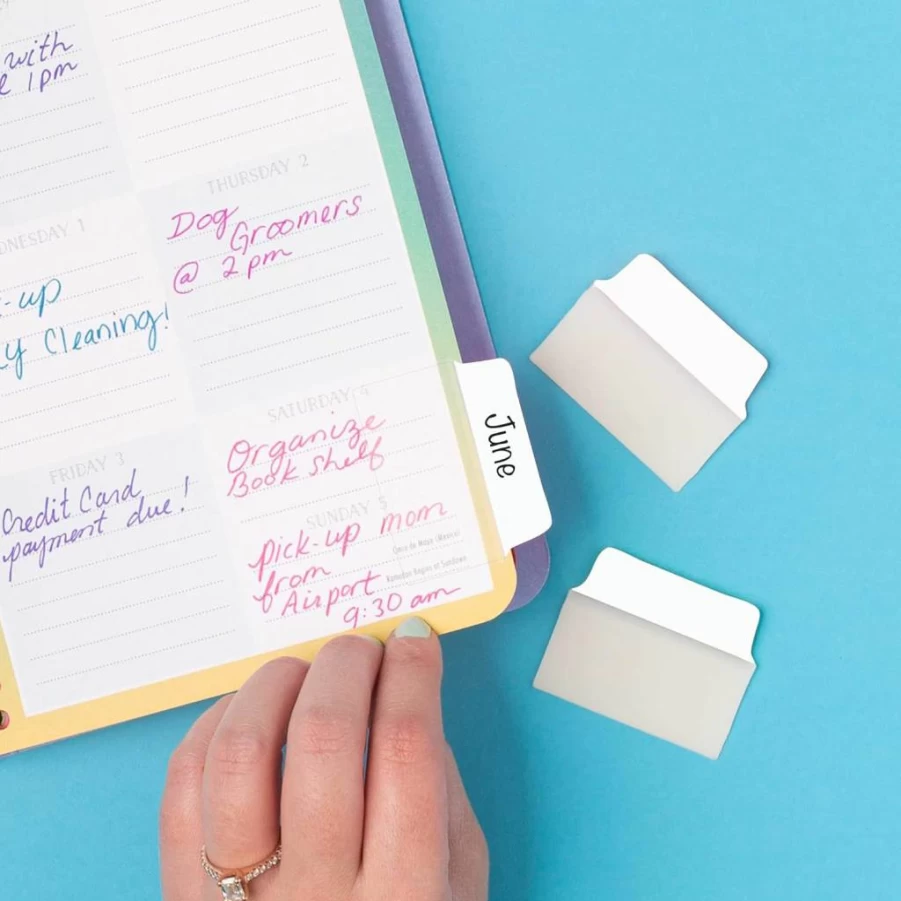 with
1pm
THURSDAY 2
Dog
Groomers
@ 2pm
WEDNESDAY 1
-up
y Cleaning!
SATURDAY 4
Organize
Book Shelf
June
FRIDAY 3
Credit Card
payment due!
SUNDAY 5
Cinco de Mayo (Mexico)
Ramadan Begins at Sundown
pick-up mom
from
Airport
9:30 am